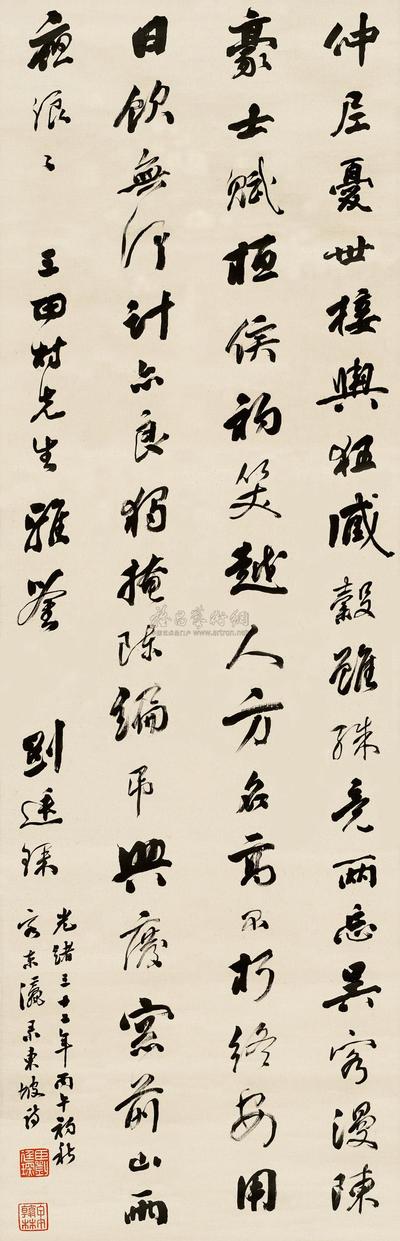 仲尼憂世接輿狂臧穀雖殊竟兩忘吳客漫陳
豪士賦桓侯初笑越人方名高不朽終安用
日飲無何計亦良獨掩陳編弔興廢窓前山雨
夜浪〻 玉田村先生雅鉴
劉廷琛
光緒三十二年丙午初秋
客東瀛录東坡詩
www.artron.net